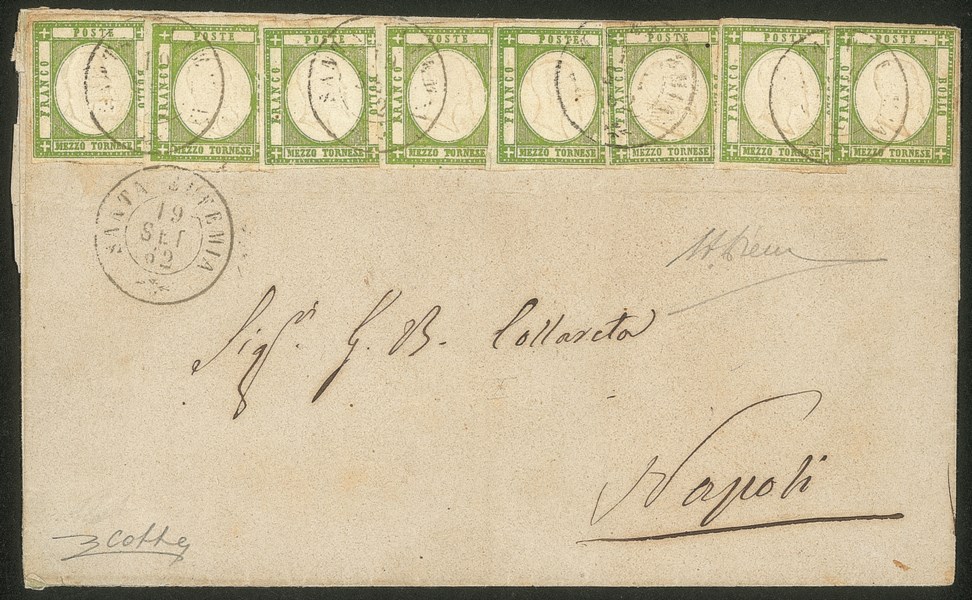 POSTE POSTE POSTE POSTE POSTE POSTE POSTE POSTE
FRANCO BOLLO FRANCO FRANCO BOLLO FRANCO FRANCO FRANCO FRANCO BOLLO
MEZZO TORNESE MEZZO TORNESE MEZZO TORNESE MEZZO TORNESE MEZZO TORNESE MEZZO TORNESE MEZZO TORNESE MEZZO TORNESE
SANTA EUFEMIA
19
SET
62
Sig.ri G. B. Collareta
Napoli